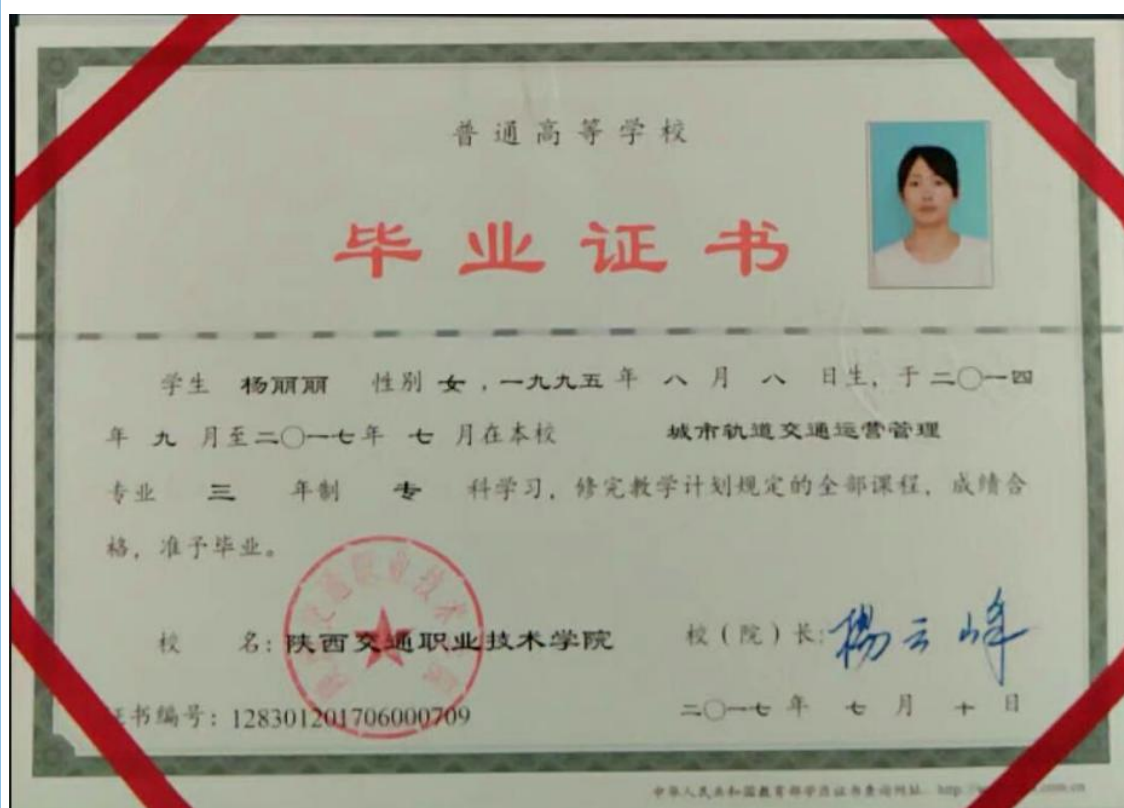 普通高等学校
毕业证书
学生 杨丽丽 性别 女,一九九五年 八 月 八 日生,于二〇一四
年 九 月至二〇一七年 七 月在本校 城市轨道交通运营管理
专业 三 年制 专 科学习,修完教学计划规定的全部课程,成绩合
格,准予毕业。
交通职业技术
校 名:陕西交通职业技术学院 校(院)长:杨云峰
证书编号:128301201706000709 二〇一七年 七 月 十 日
中华人民共和国教育部学历证书查询网址 http://